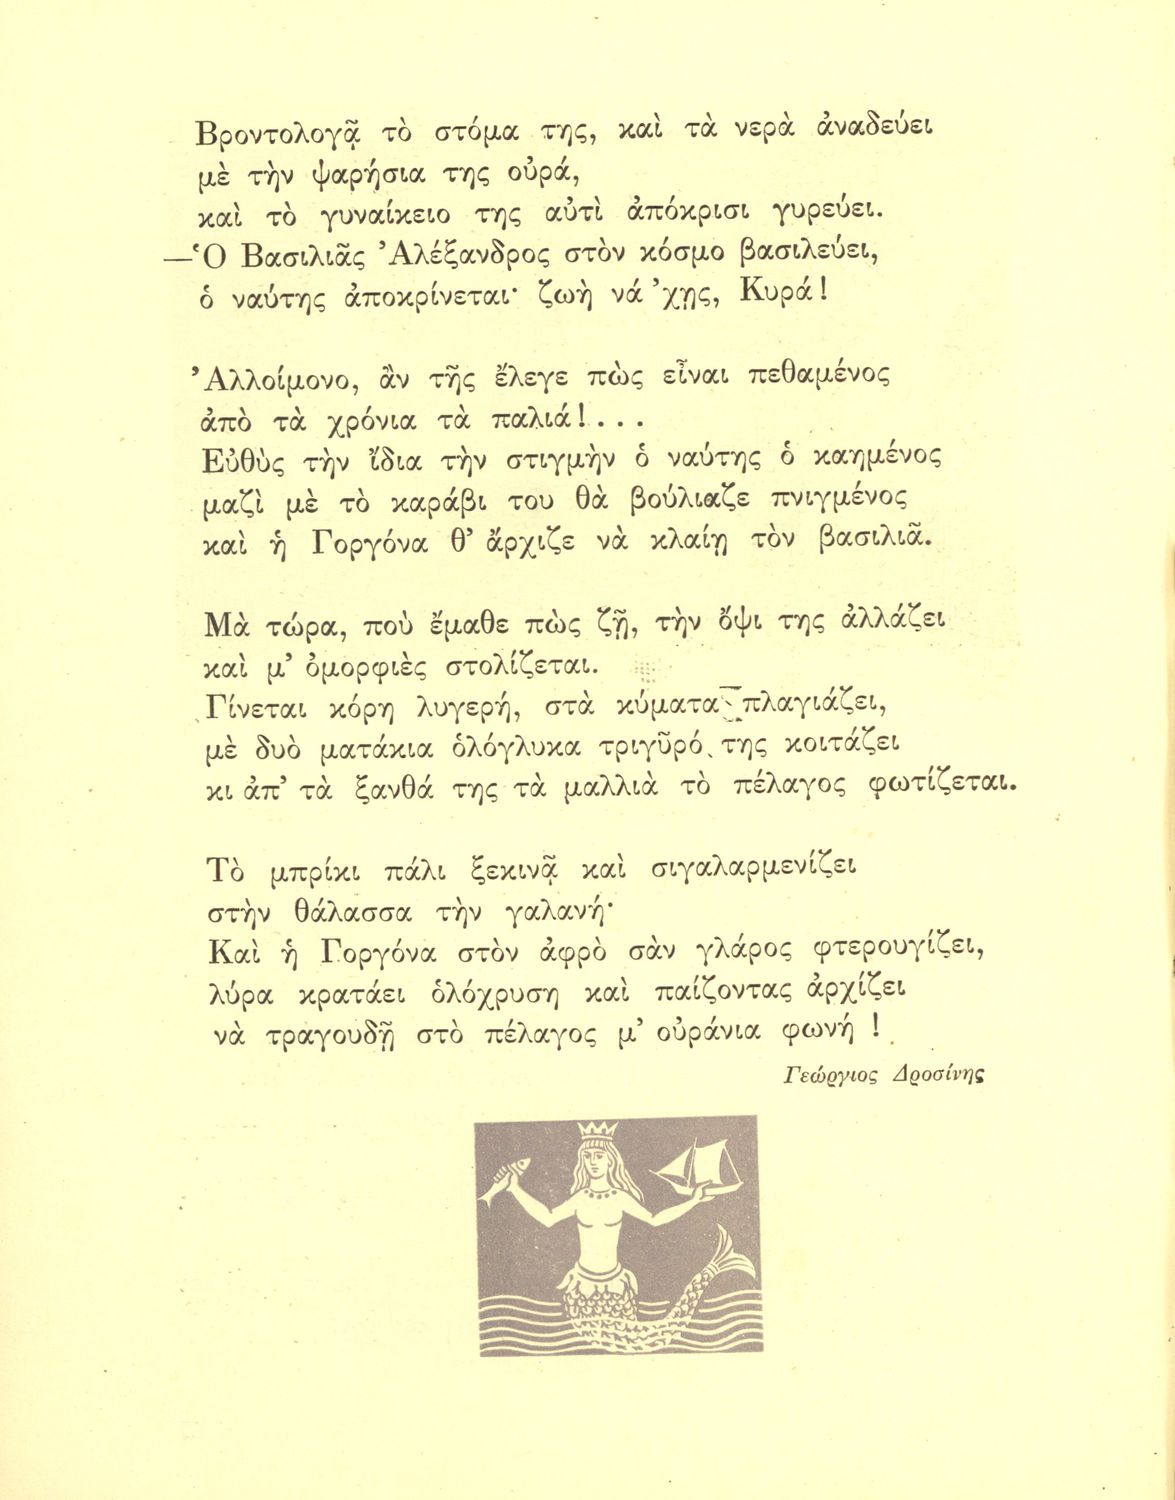 Βροντολογᾷ τὸ στόμα της, καὶ τὰ νερὰ ἀναδεύει
μὲ τὴν ψαρήσια της οὐρά,
καὶ τὸ γυναίκειο της αὐτὶ ἀπόκρισι γυρεύει.
—Ὁ Βασιλιᾶς Ἀλέξανδρος στὸν κόσμο βασιλεύει,
ὁ ναύτης ἀποκρίνεται· ζωὴ νά 'χῃς, Κυρά!
Ἀλλοίμονο, ἂν τῆς ἔλεγε πὼς εἶναι πεθαμένος
ἀπὸ τὰ χρόνια τὰ παλιά!...
Εὐθὺς τὴν ἴδια τὴν στιγμὴν ὁ ναύτης ὁ καημένος
μαζὶ μὲ τὸ καράβι του θὰ βούλιαζε πνιγμένος
καὶ ἡ Γοργόνα θ' ἄρχιζε νὰ κλαίῃ τὸν βασιλιᾶ.
Μὰ τώρα, ποὺ ἔμαθε πὼς ζῇ, τὴν ὄψι της ἀλλάζει
καὶ μ' ὀμορφιὲς στολίζεται.
Γίνεται κόρη λυγερή, στὰ κύματα πλαγιάζει,
μὲ δυὸ ματάκια ὁλόγλυκα τριγῦρό της κοιτάζει
κι ἀπ' τὰ ξανθά της τὰ μαλλιὰ τὸ πέλαγος φωτίζεται.
Τὸ μπρίκι πάλι ξεκινᾷ καὶ σιγαλαρμενίζει
στὴν θάλασσα τὴν γαλανή·
Καὶ ἡ Γοργόνα στὸν ἀφρὸ σὰν γλάρος φτερουγίζει,
λύρα κρατάει ὁλόχρυση καὶ παίζοντας ἀρχίζει
νὰ τραγουδῇ στὸ πέλαγος μ' οὐράνια φωνή !
Γεώργιος Δροσίνης